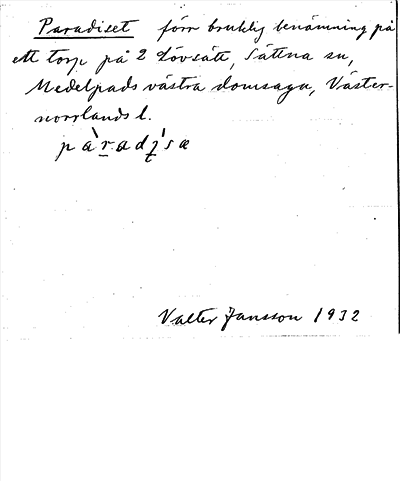 Paradiset förr bruklig benämning på
ett torp på 2 Lövsätt, Sättna sn,
Medelpads västra domsaga, Väster-
norrlands l.
Valter Jansson 1932